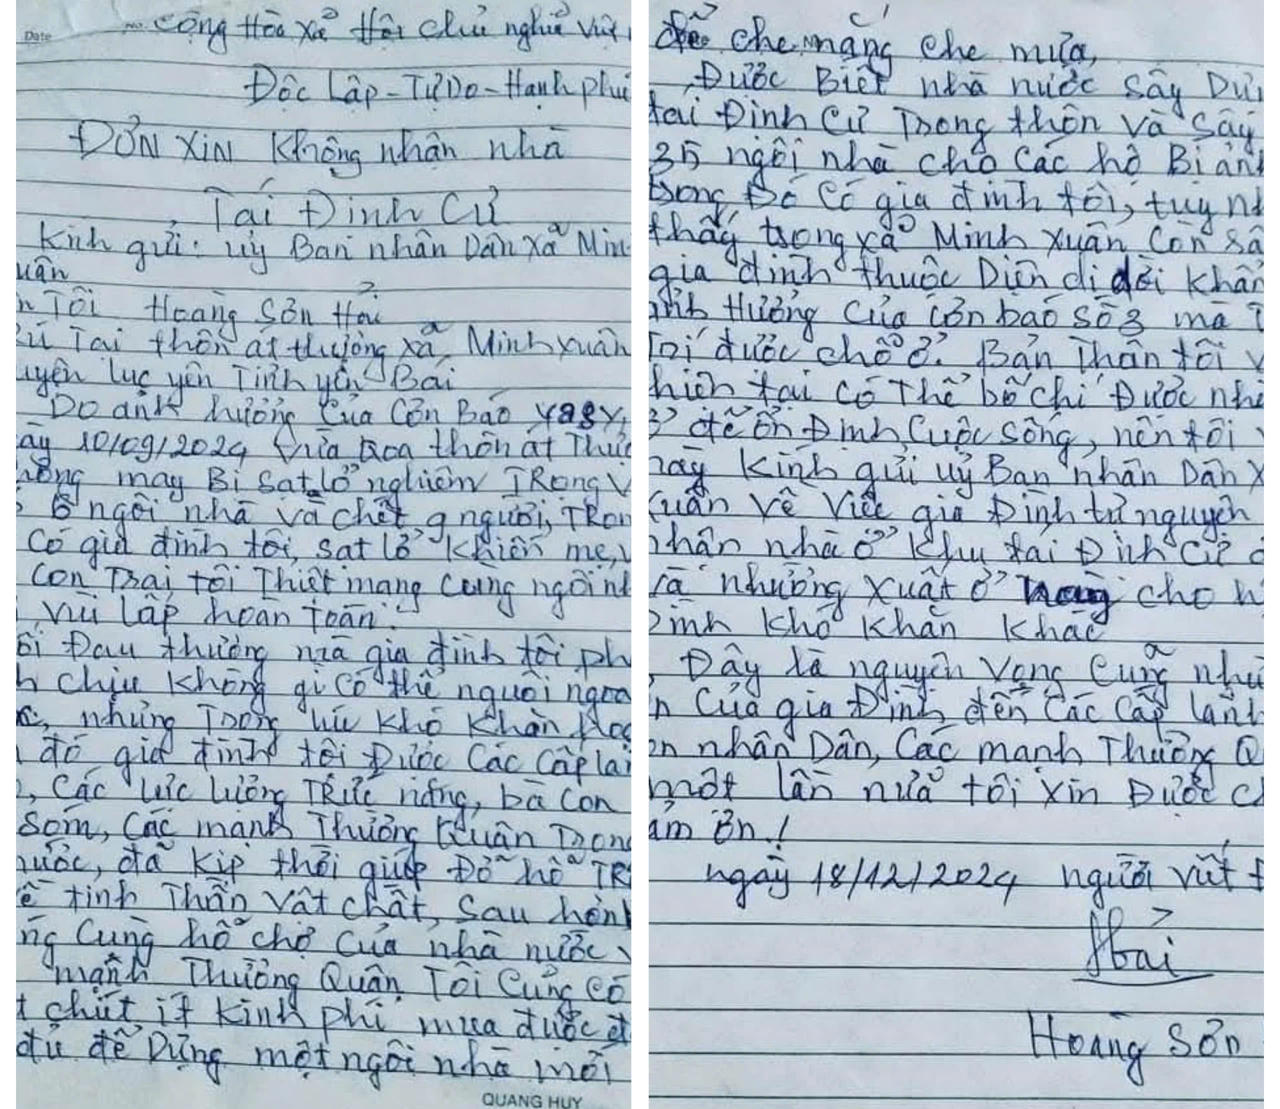 Date No. Cộng Hòa Xã Hội Chủ nghĩa Việt
Độc Lập - Tự Do - Hạnh phú
ĐƠN XIN Không nhận nhà
Tái Định Cư
Kính gửi: uỷ Ban nhân Dân xã Min
uân
n Tôi Hoàng Sơn Hải
cú Tại thôn át thượng xã Minh xuân
uyện lục yên Tỉnh yên Bái
Do ảnh hưởng của Cơn Bão yagy,
ày 10/09/2024 vừa qoa thôn át Thượ
hông may Bị sạt lở nghiêm TRọng v
6 ngôi nhà và chết 9 người, TRon
Có gia đình tôi, sạt lở khiến mẹ, v
con Trai tôi Thiệt mạng cùng ngôi nh
vùi lấp hoàn toàn.
ỗi Đau thương mà gia đình tôi ph
h chịu không gì có thể nguôi ngoa
nhưng Trong lúc khó khăn
đó gia đình tôi Được Các Cấp lã
, Các lực lưỡng TRức năng, bà con
sóm, Các mạnh Thường Quân Trong
nước, đã kịp thời giúp Đỡ hỗ TR
ề tinh Thần vật chất, sau hơn
ng Cùng hỗ chợ của nhà nước v
mạnh Thường Quân Tôi Cũng có
t chút ít kinh phí mua được đ
đủ để Dựng một ngôi nhà mới
QUANG HUY
để che nắng che mưa,
Được Biết nhà nước sây Dựn
tái Định Cư Trong thôn và sây
35 ngôi nhà cho các hộ Bị ản
trong Đó có gia đình tôi, tuy nh
thấy trong xã Minh xuân còn
gia đình thuộc Diện di dời khẩn
ảnh Hưởng của cơn bão số 3 mà
Tới được chỗ ở. Bản Thân tôi v
hiện tại có Thể bố chí Được
ở để ổn Định Cuộc sống, nên tôi v
này kính gửi uỷ Ban nhân Dân X
xuân về việc gia Đình tự nguyện
nhận nhà ở khu tái Định cư
và nhường xuất ở này cho h
Đình khó khăn khác
Đây là nguyện vọng Cũng như
n của gia Đình đến Các Cấp lãnh
ơn nhân Dân, Các mạnh Thường Q
một lần nữa tôi xin Được c
ảm ơn!
ngày 18/12/2024 người viết đ
Hải
Hoàng Sơn